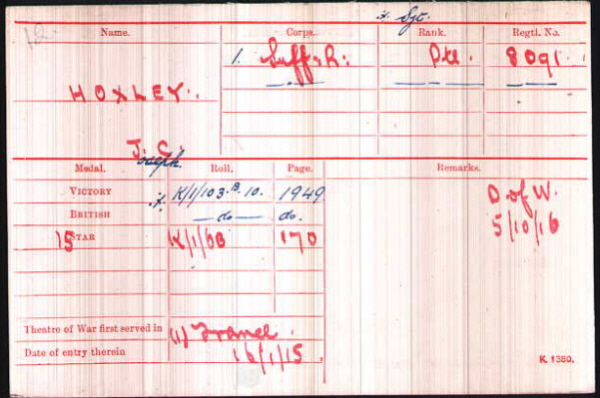 * Sgt.
Name. Corps. Rank. Regtl. No.
1. Suff: R: Pte 8091.
HOXLEY.
J. C.
Joseph.
Medal. Roll. Page. Remarks.
VICTORY *. K/1/103.B.10. 1949 D of W.
BRITISH —do— do. 5/10/16
15 STAR K/1/6B 170
Theatre of War first served in (1) France.
Date of entry therein 16/1/15
K 1380.